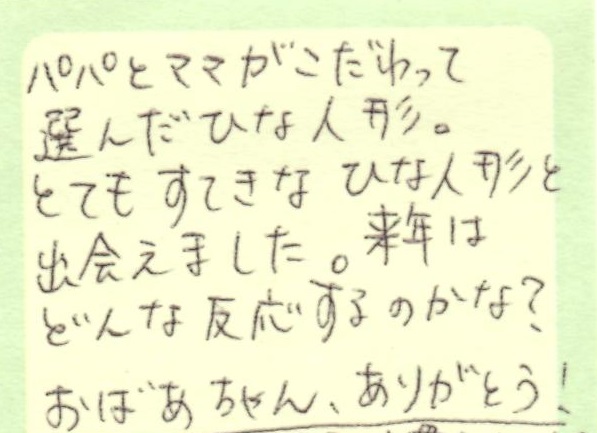 パパとママがこだわって
選んだひな人形。
とてもすてきなひな人形と
出会えました。来年は
どんな反応するのかな？
おばあちゃん、ありがとう！